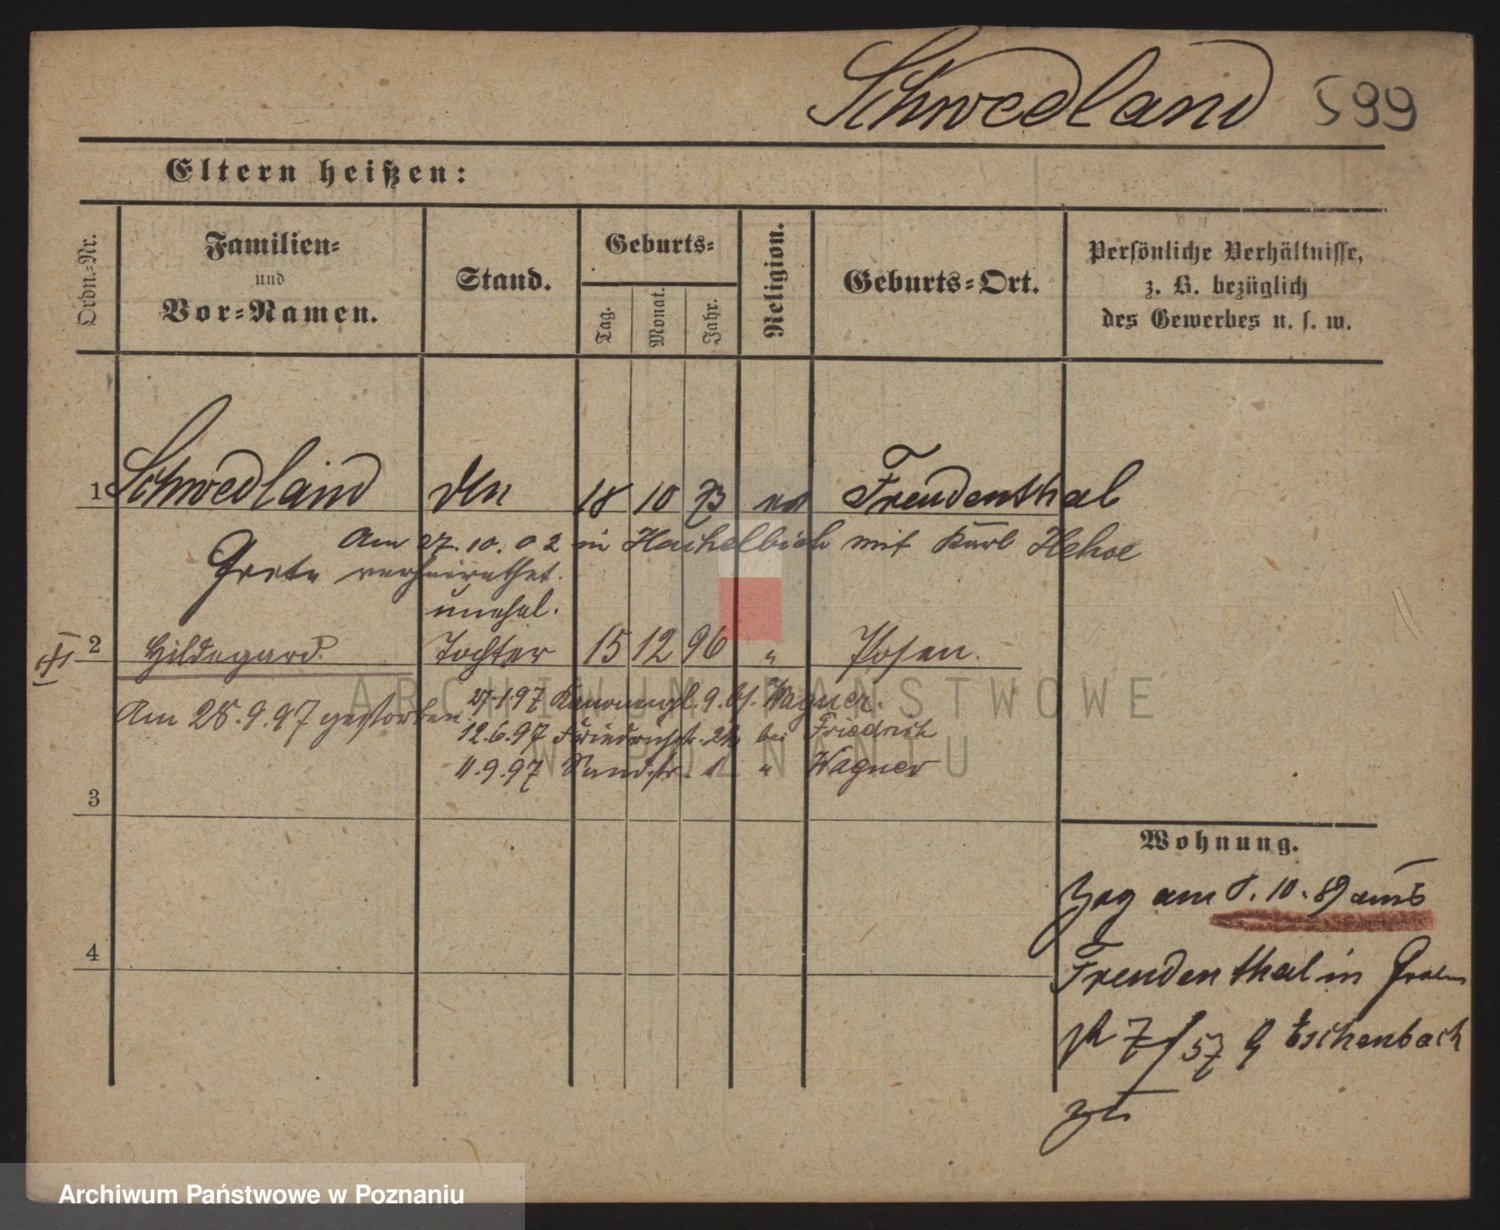 Schwedland 599
Eltern heißen:
Ordn.-Nr.
Familien-
und
Vor-Namen.
Stand.
Geburts-
Tag.
Monat.
Jahr.
Religion.
Geburts-Ort.
Persönliche Verhältnisse,
z. B. bezüglich
des Gewerbes u. s. w.
1 Schwedland 18 10 73 Freudenthal
Am 27.10.02 in mit Karl
Grete verheirathet.
unehel.
2 Hildegard Tochter 15 12 96 " Posen.
27.1.97 9. Wagner.
Am 28.9.97 gestorben
12.6.97 Friedrichstr. bei Friedrich
11.9.97 1 " Wagner
3
4
Wohnung.
Zog am 8.10.89 aus
Freudenthal in
7/57 Eschenbach
zu
ARCHIWUM PAŃSTWOWE
W POZNANIU
Archiwum Państwowe w Poznaniu